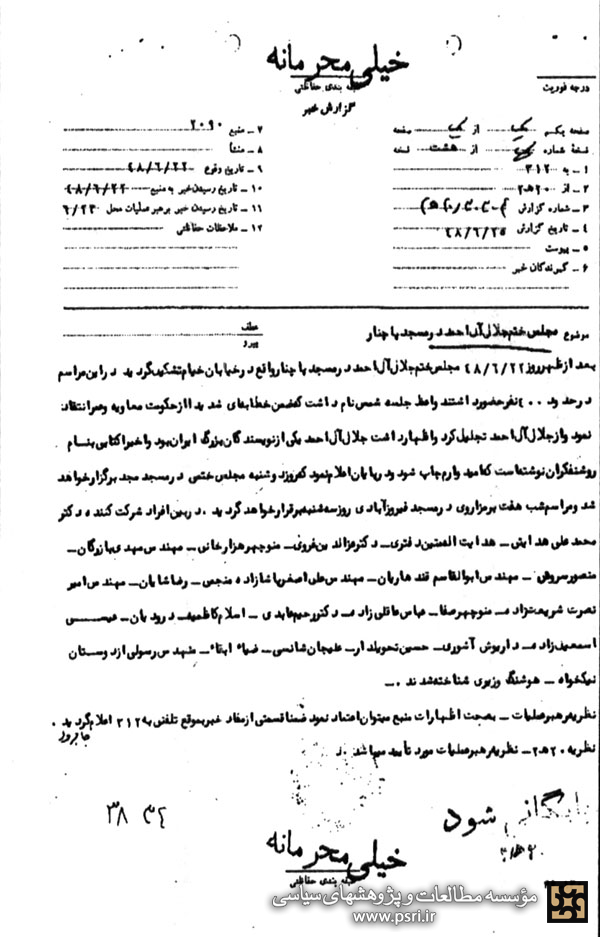 خیلی محرمانه
طبقه بندی حفاظتی
گزارش خبر
درجه فوریت
صفحه یکم یک از یک صفحه
نسخهٔ شماره یک از هشت نسخه
۱ ـ به ۳۱۲
۲ ـ از ۲۰ هـ ۲
۳ ـ شماره گزارش
۴ ـ تاریخ گزارش ۴۸/۶/۲۵
۵ ـ پیوست
۶ ـ گیرندگان خبر
۷ ـ منبع ۲۰۹۰
۸ ـ منشأ
۹ ـ تاریخ وقوع ۴۸/۶/۲۲
۱۰ ـ تاریخ رسیدن خبر به منبع ۴۸/۶/۲۲
۱۱ ـ تاریخ رسیدن خبر برهبر عملیات محل ۶/۲۳
۱۲ ـ ملاحظات حفاظتی
موضوع مجلس ختم جلال آل احمد در مسجد پاچنار
عطف
پیرو
بعد از ظهر روز ۴۸/۶/۲۲ مجلس ختم جلال آل احمد در مسجد پاچنار واقع در خیابان خیام تشکیل گردید در این مراسم
در حدود ۴۰۰ نفر حضور داشتند واعظ جلسه شمس نام داشت که ضمن خطابه‌ای شدیدا از حکومت معاویه و عمر انتقاد
نمود و از جلال آل احمد تجلیل کرد و اظهار داشت جلال آل احمد یکی از نویسندگان بزرگ ایران بود و اخیرا کتابی بنام
روشنفکران نوشته است که امیدوارم چاپ شود و در پایان اعلام نمود که روز دوشنبه مجلس ختمی در مسجد مجد برگزار خواهد
شد و مراسم شب هفت بر مزار وی در مسجد فیروزآبادی روز سه‌شنبه برقرار خواهد گردید . در بین افراد شرکت کننده دکتر
محمد علی هدایتی ـ هدایت اله متین دفتری ـ دکتر عزالدین فروی ـ منوچهر هزارخانی ـ مهندس مهدی بازرگان ـ
منصور سروش ـ مهندس ابوالقاسم قندهاریان ـ مهندس علی اصغر پاشازاده منجمی ـ رضا شایان ـ مهندس امیر
نصرت شریعت‌زاده ـ منوچهر صفا ـ عباس عاقلی زاده ـ دکتر رحیم عابدی ـ اسلام کاظمیه ـ درودیان ـ عیسی
اسمعیل‌زاده ـ داریوش آشوری ـ حسین تحویلدار ـ علیجان شانسی ـ ضیاء ابقاء ـ مهندس رسولی از دوستان
نیکخواه ـ هوشنگ وزیری شناخته شدند . ـ
نظریه رهبر عملیات ـ بصحت اظهارات منبع میتوان اعتماد نمود ضمنا قسمتی از مفاد خبر بموقع تلفنی به ۳۱۲ اعلام گردید .
نظریه ۲۰ هـ ۲ ـ نظریه رهبر عملیات مورد تأیید میباشد .
بایگانی شود
۳۸ ۳۴
خیلی محرمانه
طبقه بندی حفاظتی
مؤسسه مطالعات و پژوهشهای سیاسی
www.psri.ir